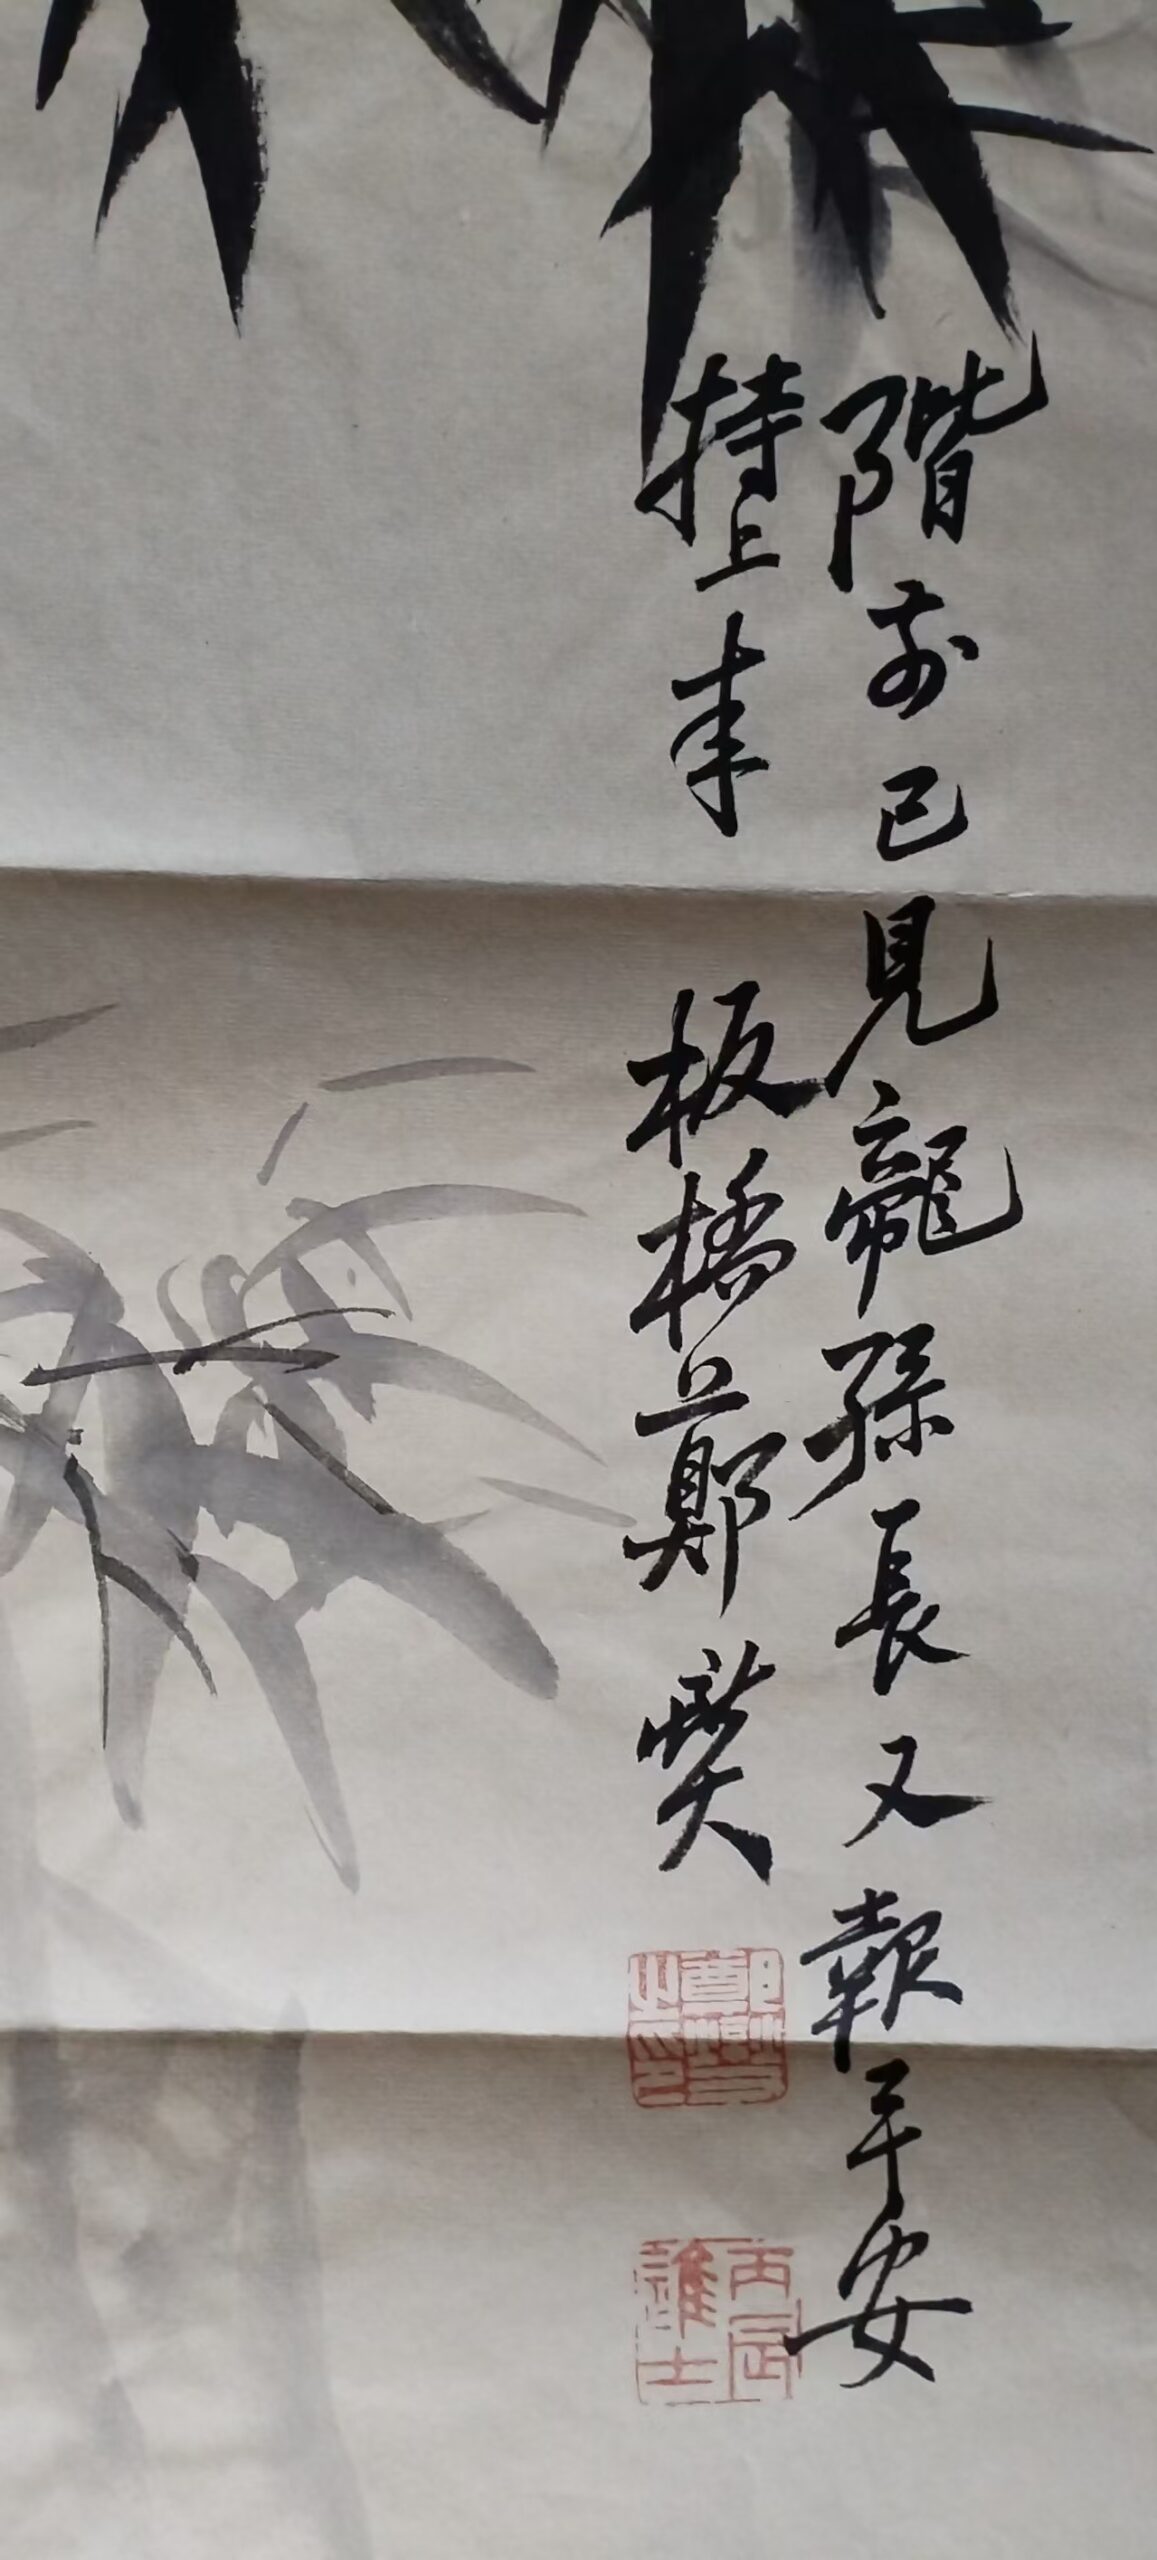 階前已見龍孫長又報平安
持上來 板橋鄭燮
鄭燮之印
丙辰進士